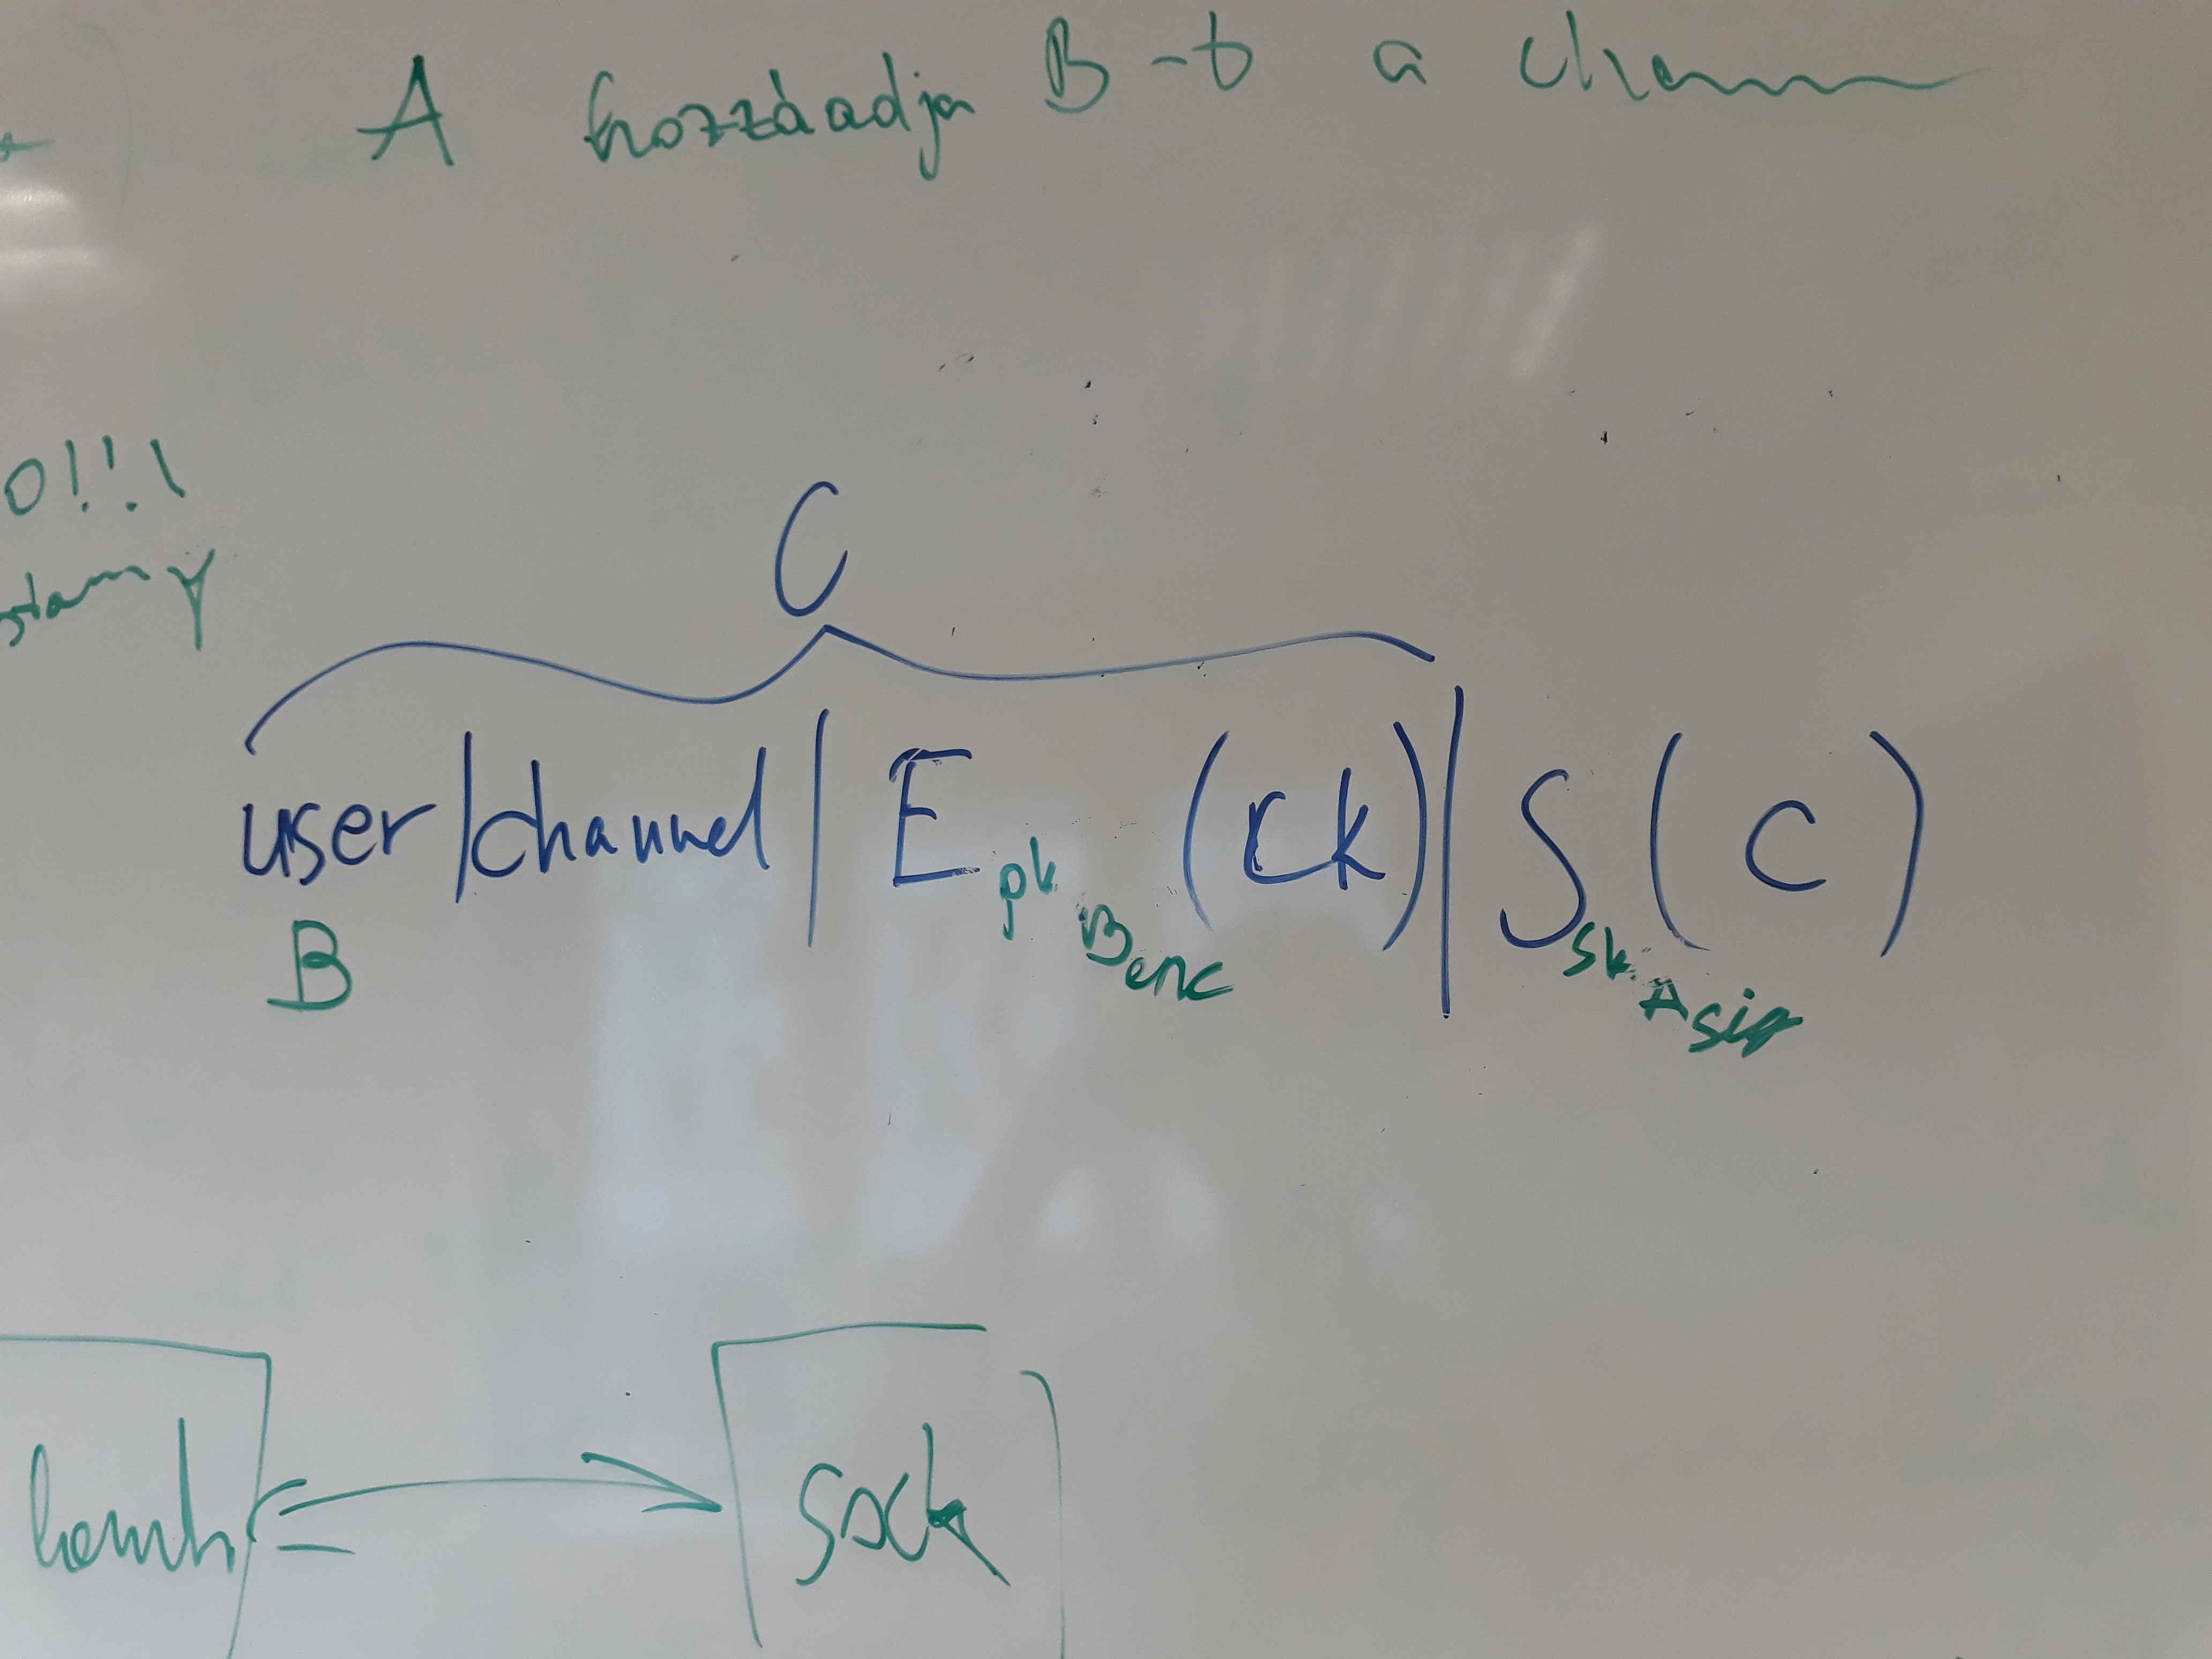 A hozzáadja B-t a chann
O!!!
C
user | channel | E pk B enc (ck) | S sk A sig (C)
B
sock